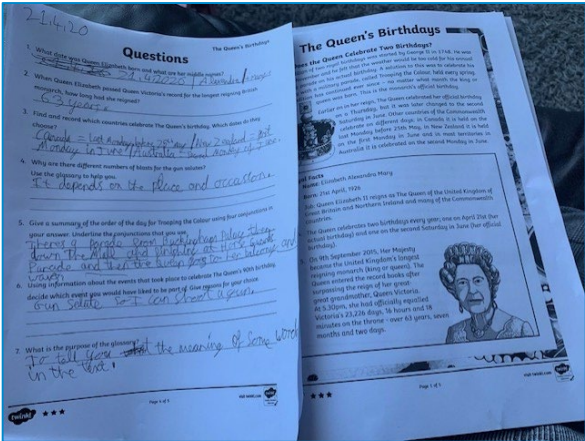 21.4.20
The Queen's Birthdays
Questions
1. What date was Queen Elizabeth born and what are her middle names?
21.4.2020 / Alexandra / mary
2. When Queen Elizabeth passed Queen Victoria's record for the longest reigning British
monarch, how long had she reigned?
63 years.
3. Find and record which countries celebrate The Queen's birthday. Which dates do they
choose?
Canada = Last Monday before 25th may / New Zealand = first
Monday in June / Australia = second Monday of June.
4. Why are there different numbers of blasts for the gun salutes?
Use the glossary to help you.
It depends on the place and occasion.
5. Give a summary of the order of the day for Trooping the Colour using four conjunctions in
your answer. Underline the conjunctions that you use.
Theres a parade from Buckingham Palace then
down The Mall and finishing at Horse Guards
Parade and then the Queen goes to her balcony and
waves
6. Using information about the events that took place to celebrate The Queen's 90th birthday,
decide which event you would have liked to be part of. Give reasons for your choice.
Gun Salute. So I can shoot a gun.
7. What is the purpose of the glossary?
To tell you the meaning of some words
in the text.
twinkl
Page 1 of 1
visit twinkl.com
The Queen's Birthdays
does the Queen Celebrate Two Birthdays?
of two royal birthdays was started by George II in 1748. He was
and he felt that the weather would be too cold for his annual
on his actual birthday. A solution to this was to celebrate his
military parade, called Trooping the Colour held every spring.
has continued ever since - no matter what month the king or
queen were born. This is the monarch's official birthday.
Earlier on in her reign, The Queen celebrated her official birthday
on a Thursday, but it was later changed to the second
Saturday in June. Other countries of the Commonwealth
celebrate on different days: in Canada it is held on the
last Monday before 25th May, in New Zealand it is held
on the first Monday in June and in most territories in
Australia it is celebrated on the second Monday in June.
Facts
Name: Elizabeth Alexandra Mary
Born: 21st April, 1926
Job: Queen Elizabeth II reigns as The Queen of the United Kingdom of
Great Britain and Northern Ireland and many of the Commonwealth
countries.
The Queen celebrates two birthdays every year, one on April 21st (her
actual birthday) and one on the second Saturday in June (her official
birthday).
On 9th September 2015, Her Majesty
became the United Kingdom's longest
reigning monarch (king or queen). The
Queen entered the record books after
surpassing the reign of her great
great grandmother, Queen Victoria.
At 5.30pm, she had officially equalled
Victoria's 23,226 days, 16 hours and 18
minutes on the throne - over 63 years, seven
months and two days.
Page 1 of
visit twinkl.com